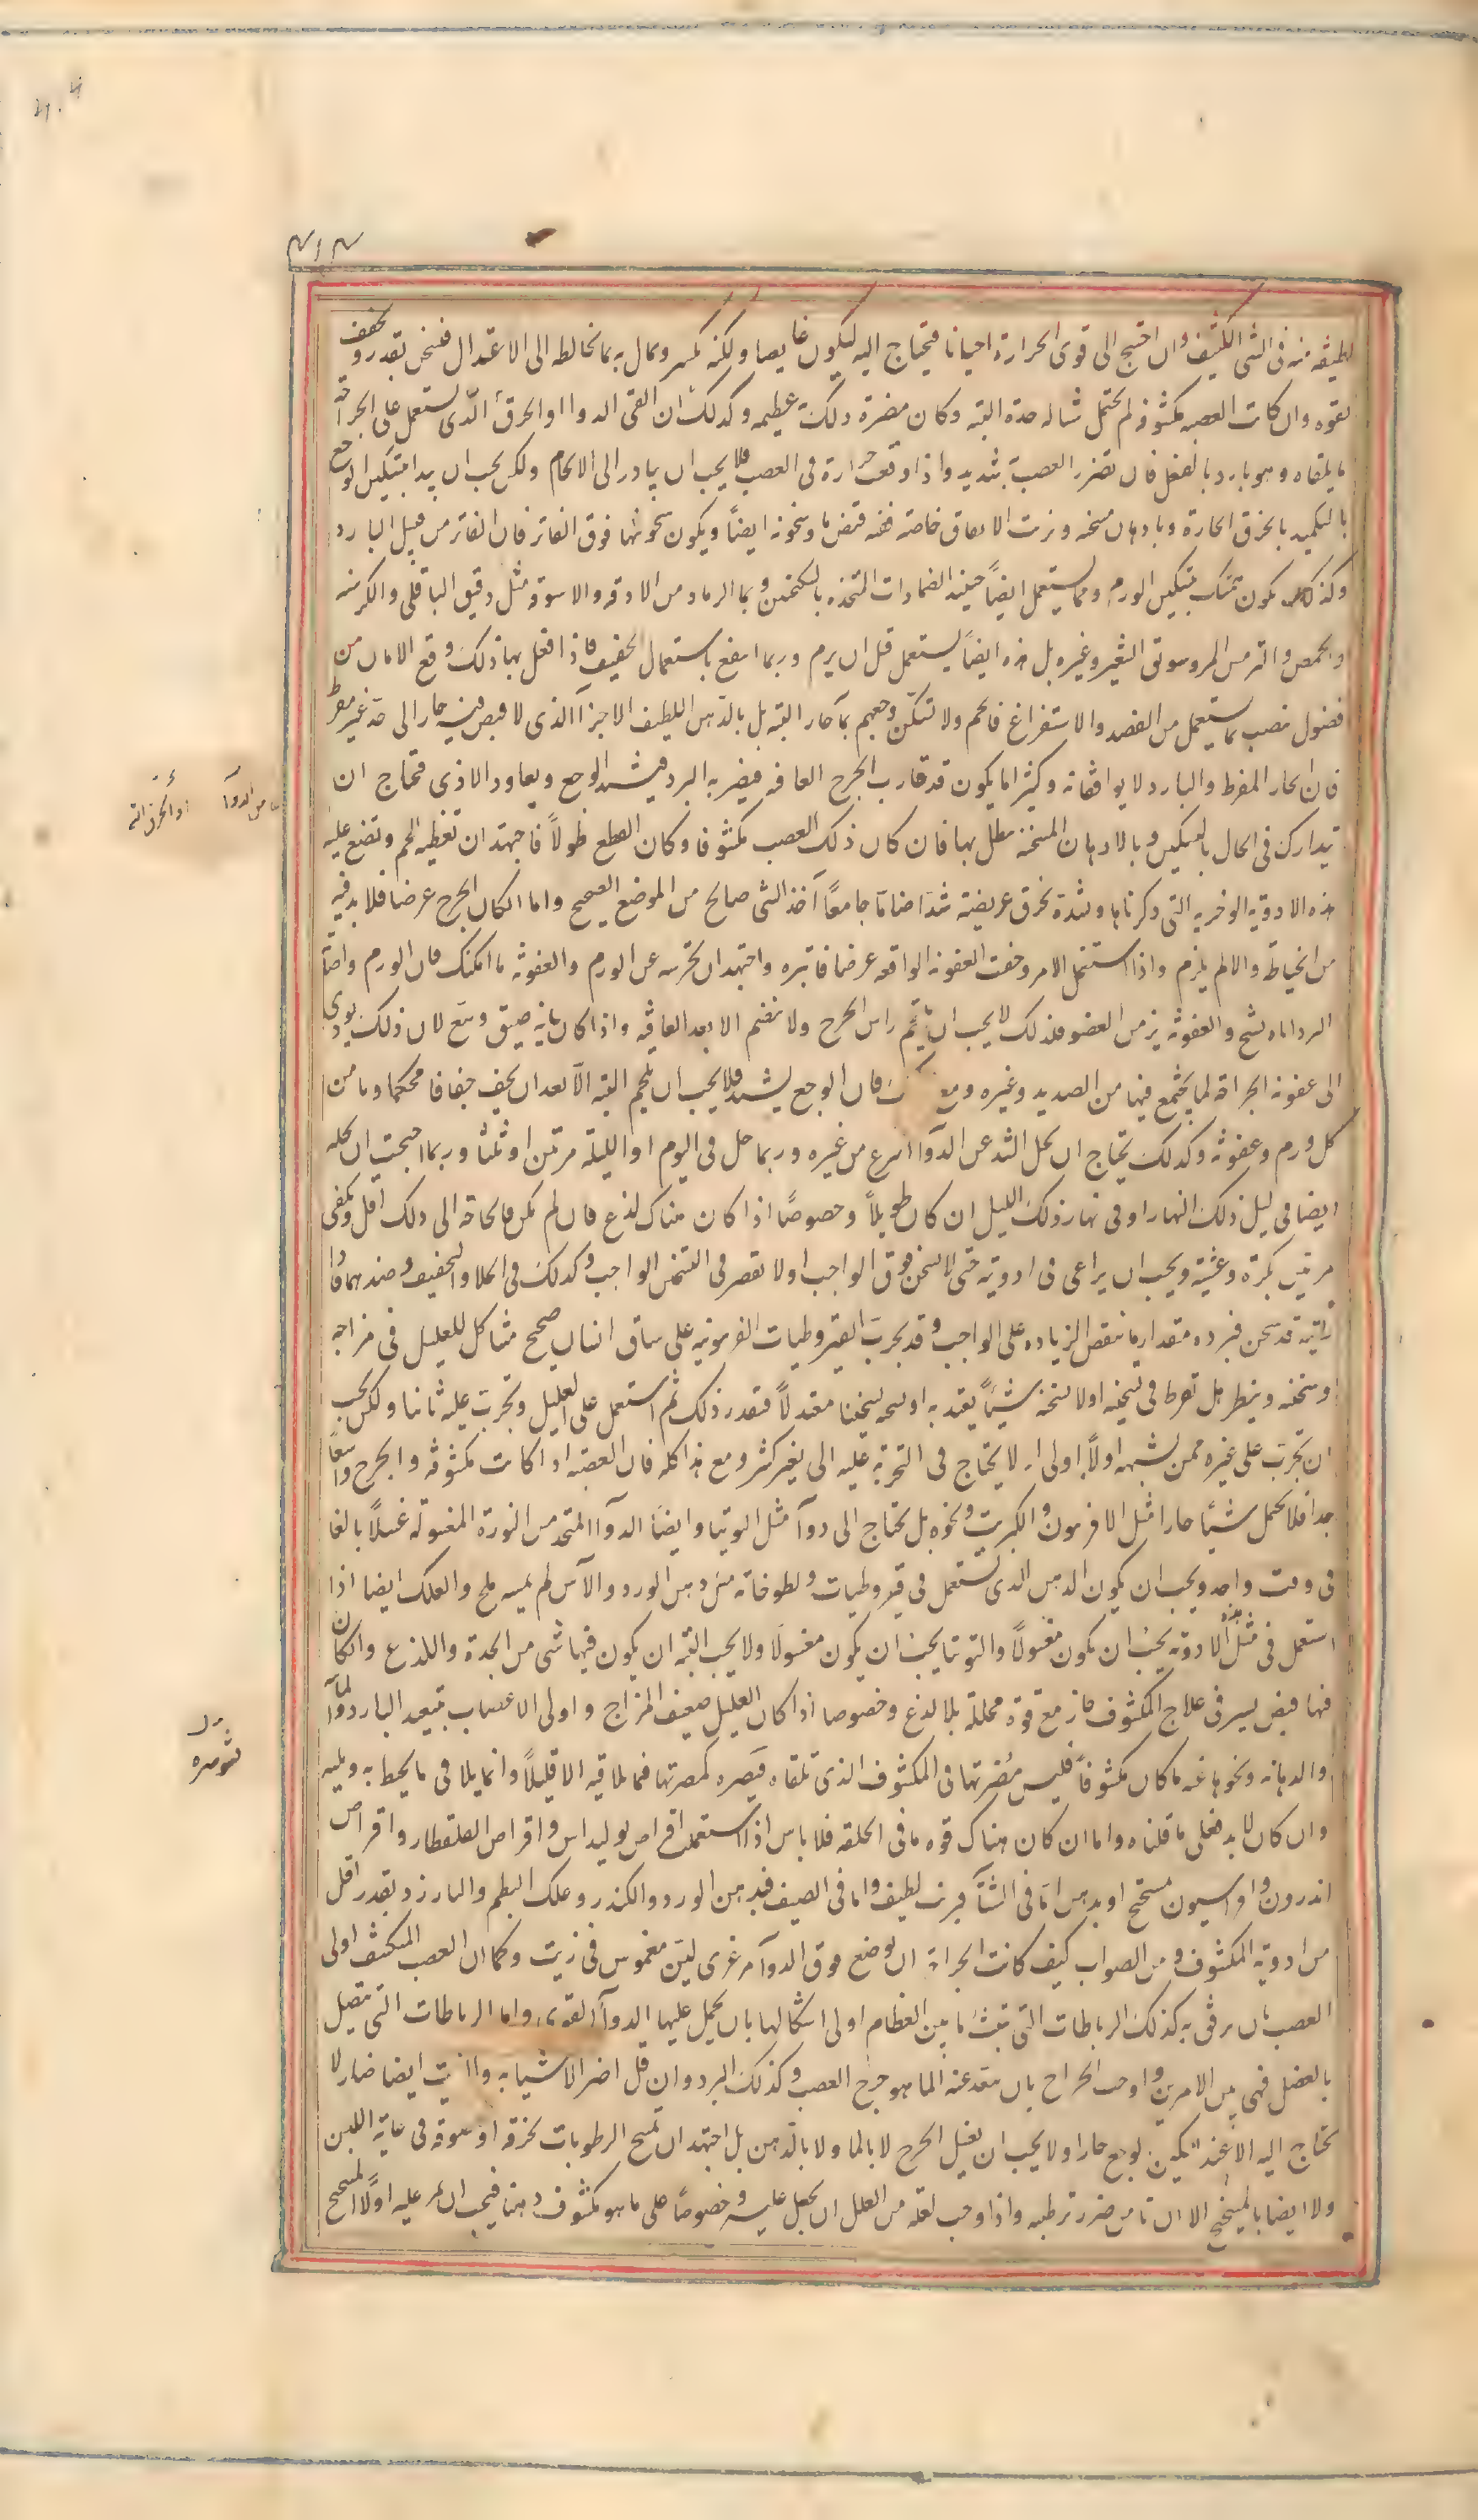 ٣١٣
لطيفه منه فى الشى الكثيف وان احتيج الى قوى الحرارة احيانا فيحتاج اليه ليكون غايصا ولكنه يكسر ويمال به بما يخالطه الى الاعتدال فيسخن بقدر ويجفف
بقوه وان كانت العصبه مكشوفه لم يحتمل شاله حدة البته وكان مضرة ذلك عظيمه وكذلك ان القى الدواا والخرق الذى يستعمل على الجراحة
ما يلقاه وهو بارد بالفعل فان تضرر العصب به شديد واذا وقعت حرارة فى العصب فلا يجب ان يبادر الى الالحام ولكن يجب ان يبدا بتسكين الوجع
بالتكميد بالخرق الحارة وبادهان مسخنه وزيت الانفاق خاصة ففيه قبض ما وسخونه ايضاً ويكون سخونتها فوق الفاتر فان الفاتر من قبيل البارد
وكذلك يكون تسكين الورم ومما يستعمل ايضاً حينئذ الضمادات المتخذه بالسكنجبين وبما الرماد من الادقه والاسوقه مثل دقيق الباقلى والكرسنه
والحمص والترمس المر وسويق الشعير وغيره بل هذه ايضاً يستعمل قبل ان يرم وربما انتفع باستعمال الخفيف فاذا فعل بها ذلك وقع الامان من
فضول تنصب مما يستعمل من الفصد والاستفراغ فالحم ولا تسكن وجعهم بمآ حار البته بل بالدهن اللطيف الاجزآ الذى لا قبض فيه حار الى حد غير مفرط
فان الحار المفرط والبارد لا يوافقانه وكثيرا ما يكون قد قارب الجرح العافيه فيضربه البرد فيشتد الوجع ويعاود الاذى فتحتاج ان
تتدارك فى الحال بالتسكين وبالادهان المسخنه تطلى بها فان كان ذلك العصب مكشوفا وكان القطع طولاً فاجتهد ان تغطيه بلحم وتضع عليه
هذه الادوية الوخريه التى ذكرناها وتشده بخرق عريضة شدا ضاما جامعاً آخذ الشى صالح من الموضع الصحيح واما ان كان الجرح عرضا فلا بد فيه
من الخياطة والا لم يلزم واذا استفحل الامر وخفت العفونه الواقعه عرضا فابتره واجتهد ان تحرسه عن الورم والعفونه ما امكنك فان الورم واصابة
البرد اياه تشنج والعفونة يزمن العضو فلذلك لا يجب ان يلتحم راس الجرح ولا ينضم الا بعد العافيه واذا كان بابه ضيق وسع لان ذلك يودى
الى عفونة الجراحة لما يجتمع فيها من الصديد وغيره ومع فان الوجع يشتد فلا يجب ان يلحم البته الا بعد ان يجف جفافا محكما ويامن
كل ورم وعفونه وكذلك يحتاج ان يحل الشد عن الدوآ اسرع من غيره وربما حل فى اليوم او الليلة مرتين او ثلثا وربما احتجت ان تحله
ايضا فى ليل ذلك النهار او فى نهار ذلك الليل ان كان طويلاً وخصوصاً اذا كان هناك لذع فان لم يكن فالحاجة الى ذلك اقل ويكفى
مرتين بكرة وعشية ويجب ان يراعى فى ادويته حتى لا تسخن فوق الواجب اولا تقصر فى التسخين الواجب وكذلك فى الجلا والتجفيف وضدهما فاذا
راتيه قد سخن فبرده مقدار ما ينقص الزياده على الواجب وقد يجرب القيروطيات الفربيونيه على ساق انسان صحيح مشاكل للعليل فى مزاجه
وسخنه وينظر هل تفرط فى تسخينه او لا تسخنه شيئاً يعتد به او تسخنه تسخينا معتدلاً فتقدر ذلك ثم استعمل على العليل وتجرب عليه ثانيا ولكن يجب
ان تجرب على غيره ممن يشبهه اولاً اولى اذ لا يحتاج فى التجربة عليه الى تغير كثير ومع هذا كله فان العصبه اذا كانت مكشوفة والجرح واسعاً
جدا فلا يحتمل شيئا حارا مثل الافربيون والكبريت ونحوه بل يحتاج الى دوآ مثل التوتيا وايضا الدوآ المتخذ من النورة المغسولة غسلاً بالغا
فى وقت واحد ويجب ان يكون الدهن الذى يستعمل فى قيروطيات ولطوخاته من دهن الورد والآس لم يمسه ملح والعلك ايضا اذا
استعمل فى مثل هذه الادوية يجب ان يكون مغسولاً والتوتيا يجب ان يكون مغسولا ولا يجب البته ان يكون فيها شى من الحدة واللذع وان كان
فيها قبض يسير فى علاج المكشوف جاز مع قوة محللة بلا لذع وخصوصا اذا كان العليل ضعيف المزاج واولى الاعصاب بتبعيد البارد والمآ
والدهانه ونحوها عنه ما كان مكشوفاً فليس مضرتها فى المكشوف الذى تلقاه فيضره كمضرتها فيما يلاقيه الا قليلاً وانما يلاقى ما يحيط به ويليه
وان كان لابد فعلى ما قلناه واما ان كان هناك قوه ما فى الخلقه فلا باس اذا استعملت اقراص بوليداس واقراص القلقطار واقراص
اندرون واراسيون مستحج او بدهن اما فى الشتآ فبزيت لطيف واما فى الصيف فبدهن الورد والكندر وعلك البطم والبارزد بقدر اقل
من ادوية المكشوف ومن الصواب كيف كانت الجراحة ان يوضع فوق الدوآ مرغرى لين مغموس فى زيت وكما ان العصب المكشف اولى
العصب بان يرفق به كذلك الرباطات التى تنبت ما بين العظام اولى اشكالها بان يحمل عليها الدوآ القوى واما الرباطات التى يتصل
بالعضل فهى بين الامرين واوجب الجراح بان يبعد عنه المآ هو جرح العصب وكذلك البرد وان قل اضر الاشيآ به والزيت ايضا ضار لا
يحتاج اليه الا عند تسكين لوجع حارا ولا يجب ان يغسل الجرح لا بالمآ ولا بالدهن بل اجتهد ان تمسح الرطوبات بخرقه او صوفه فى غاية اللين
ولا ايضا بالميبختج الا ان تامن ضرر ترطيبه واذا وجب لعله من العلل ان يجعل عليه وخصوصاً على ما هو مكشوف دهنا فيجب ان يمر عليه اولاً الميبختج